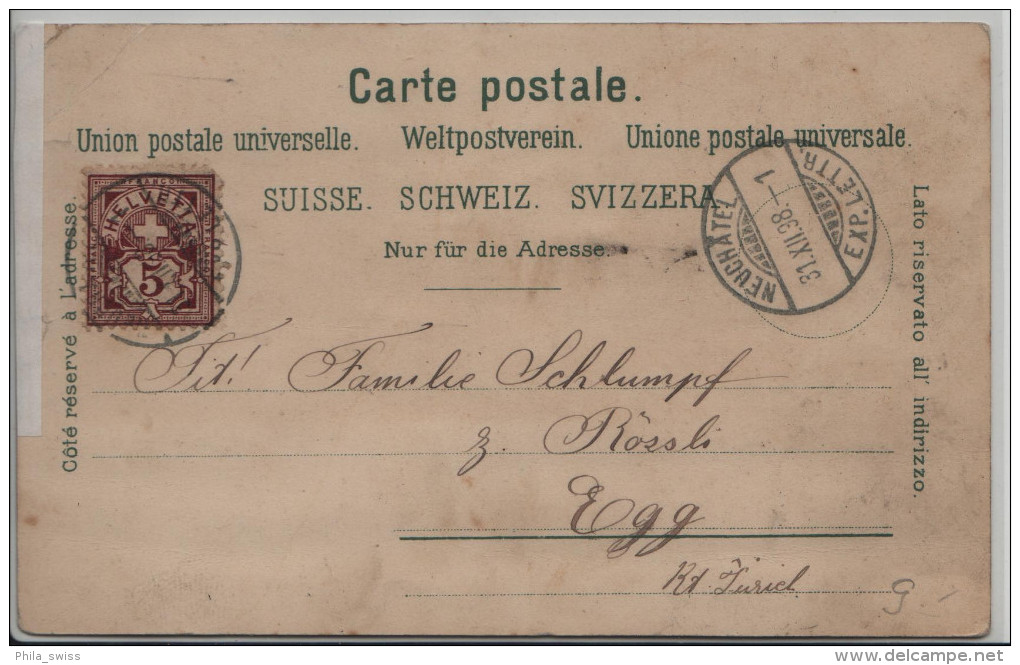 Carte postale.
Union postale universelle. Weltpostverein. Unione postale universale.
SUISSE. SCHWEIZ. SVIZZERA.
Nur für die Adresse.
Côté réservé à l'adresse.
Lato riservato all' indirizzo.
FRANCO
HELVETIA
5
NEUCHÂTEL
31.XII.98.-1
EXP. LETTR.
Tit! Familie Schlumpf
z. Rössli
Egg
Kt. Zürich
Phila_swiss